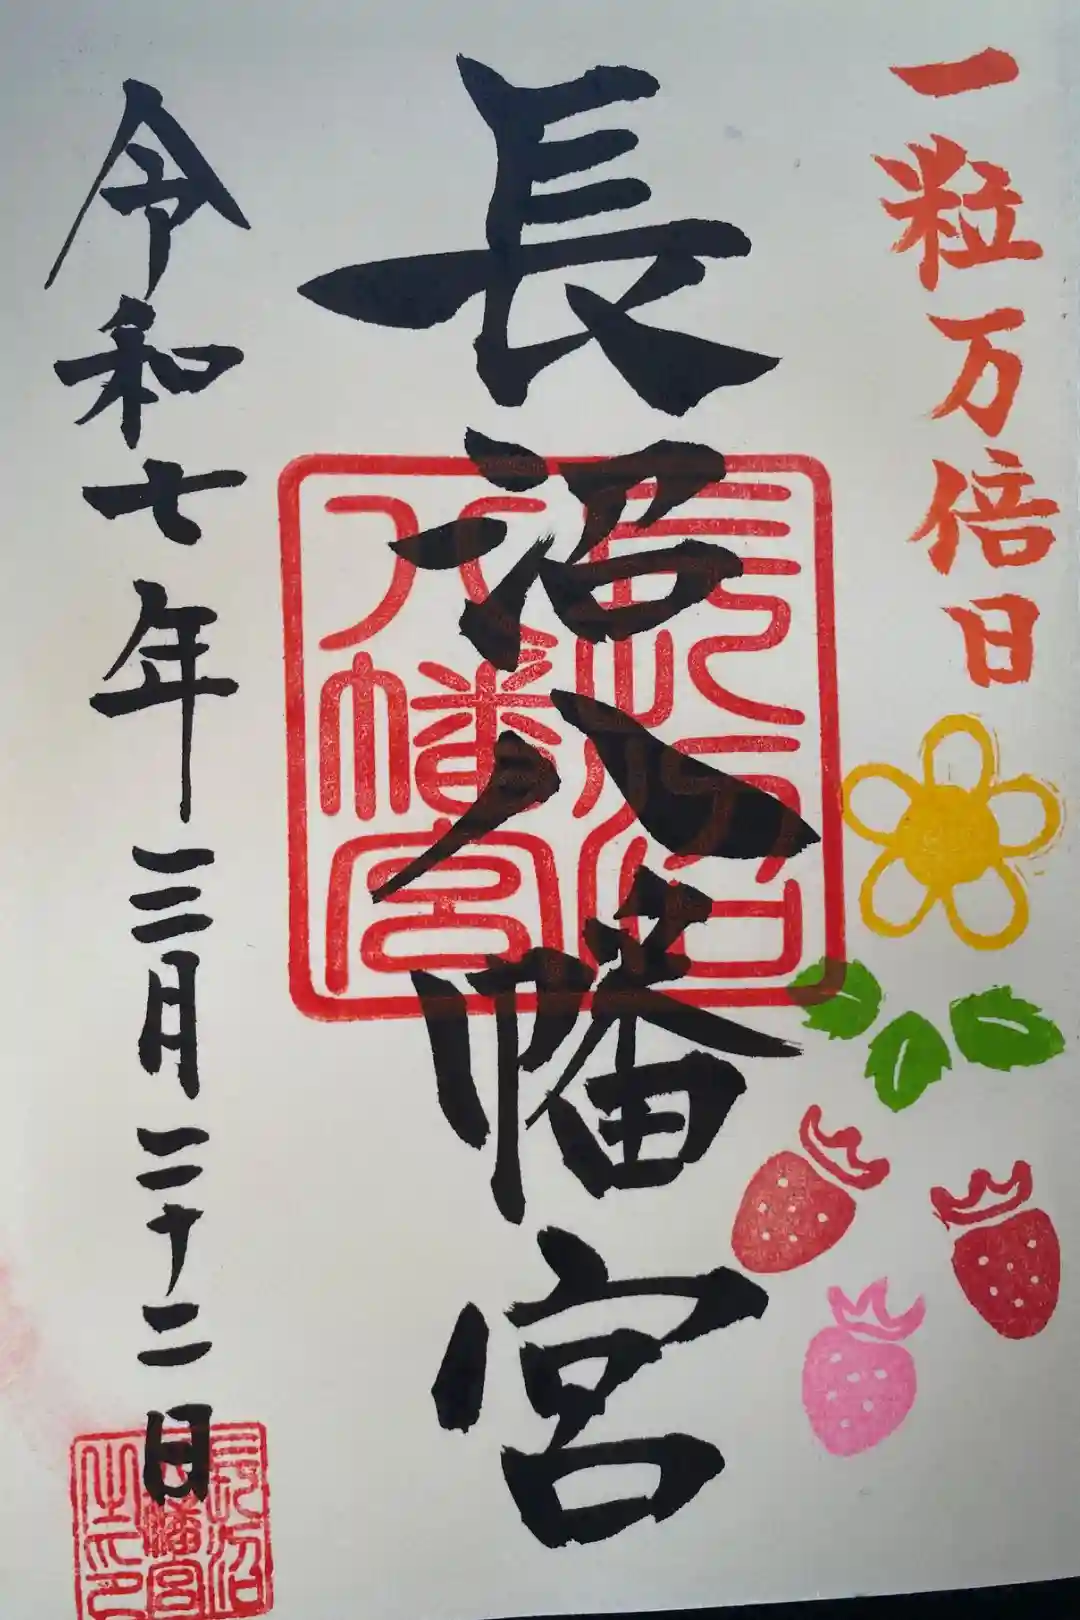 一粒万倍日
長沼八幡宮
長沼八幡宮
令和七年三月二十二日
長沼八幡宮之印